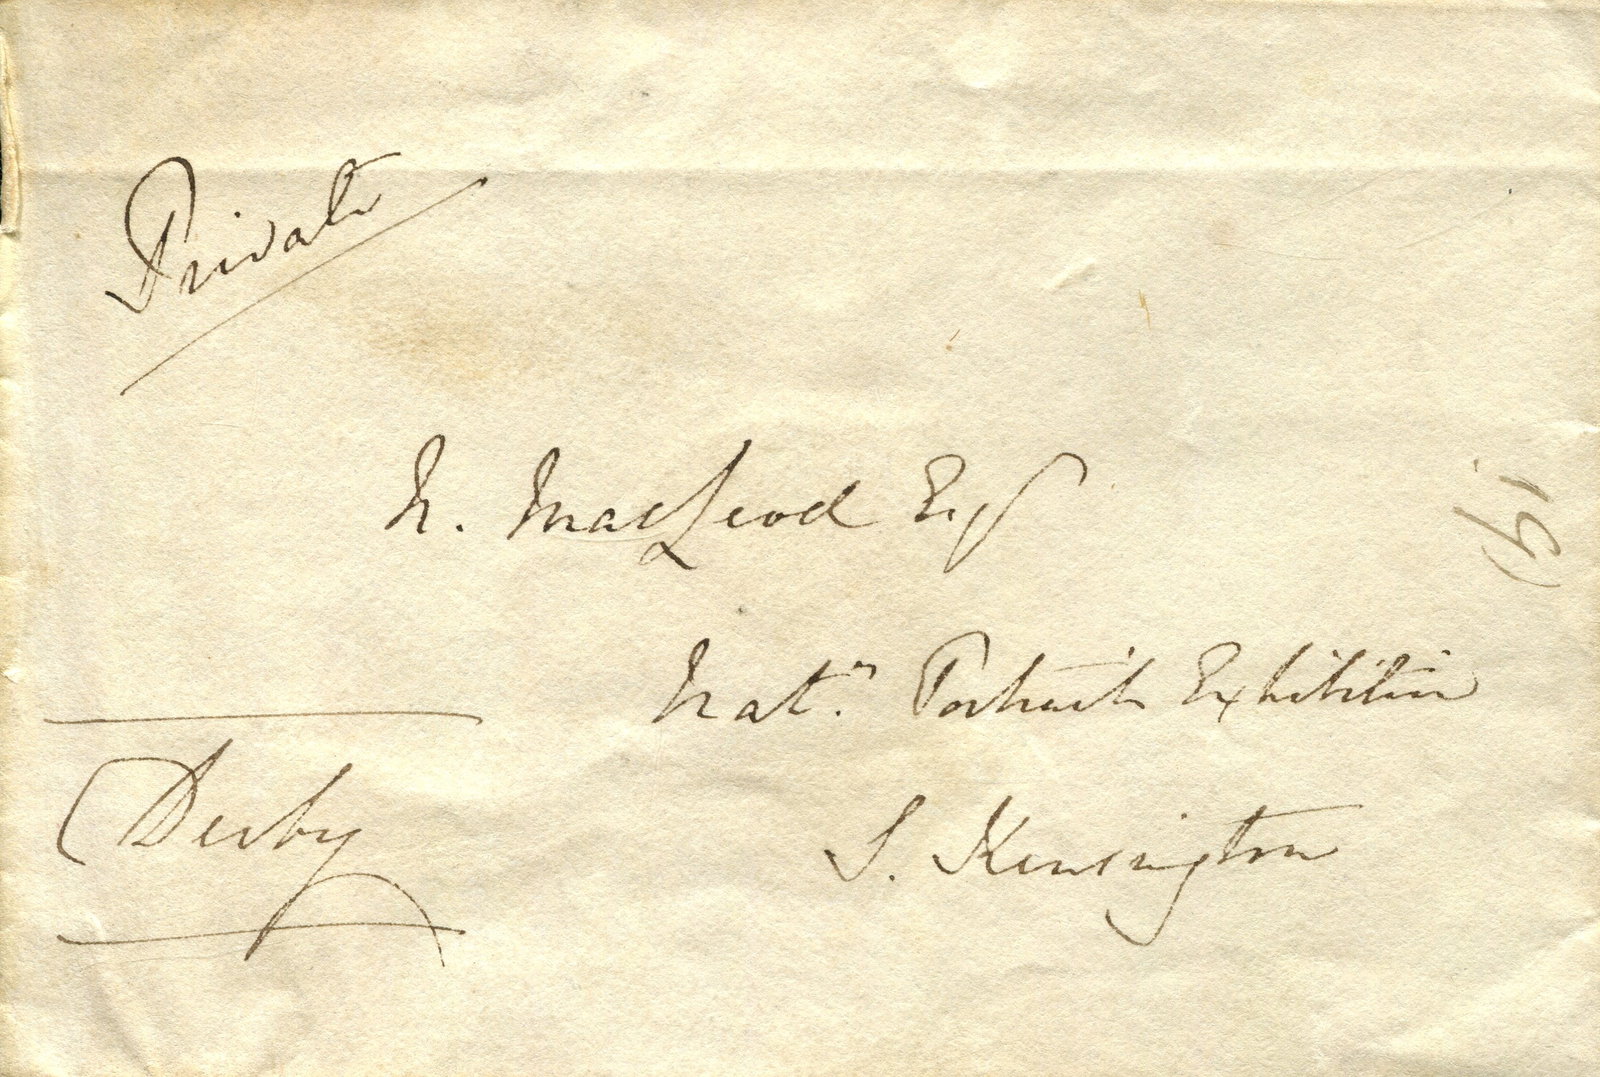 Private
N. MacLeod Esq
Nat.n Portrait Exhibition
S. Kensington
Derby